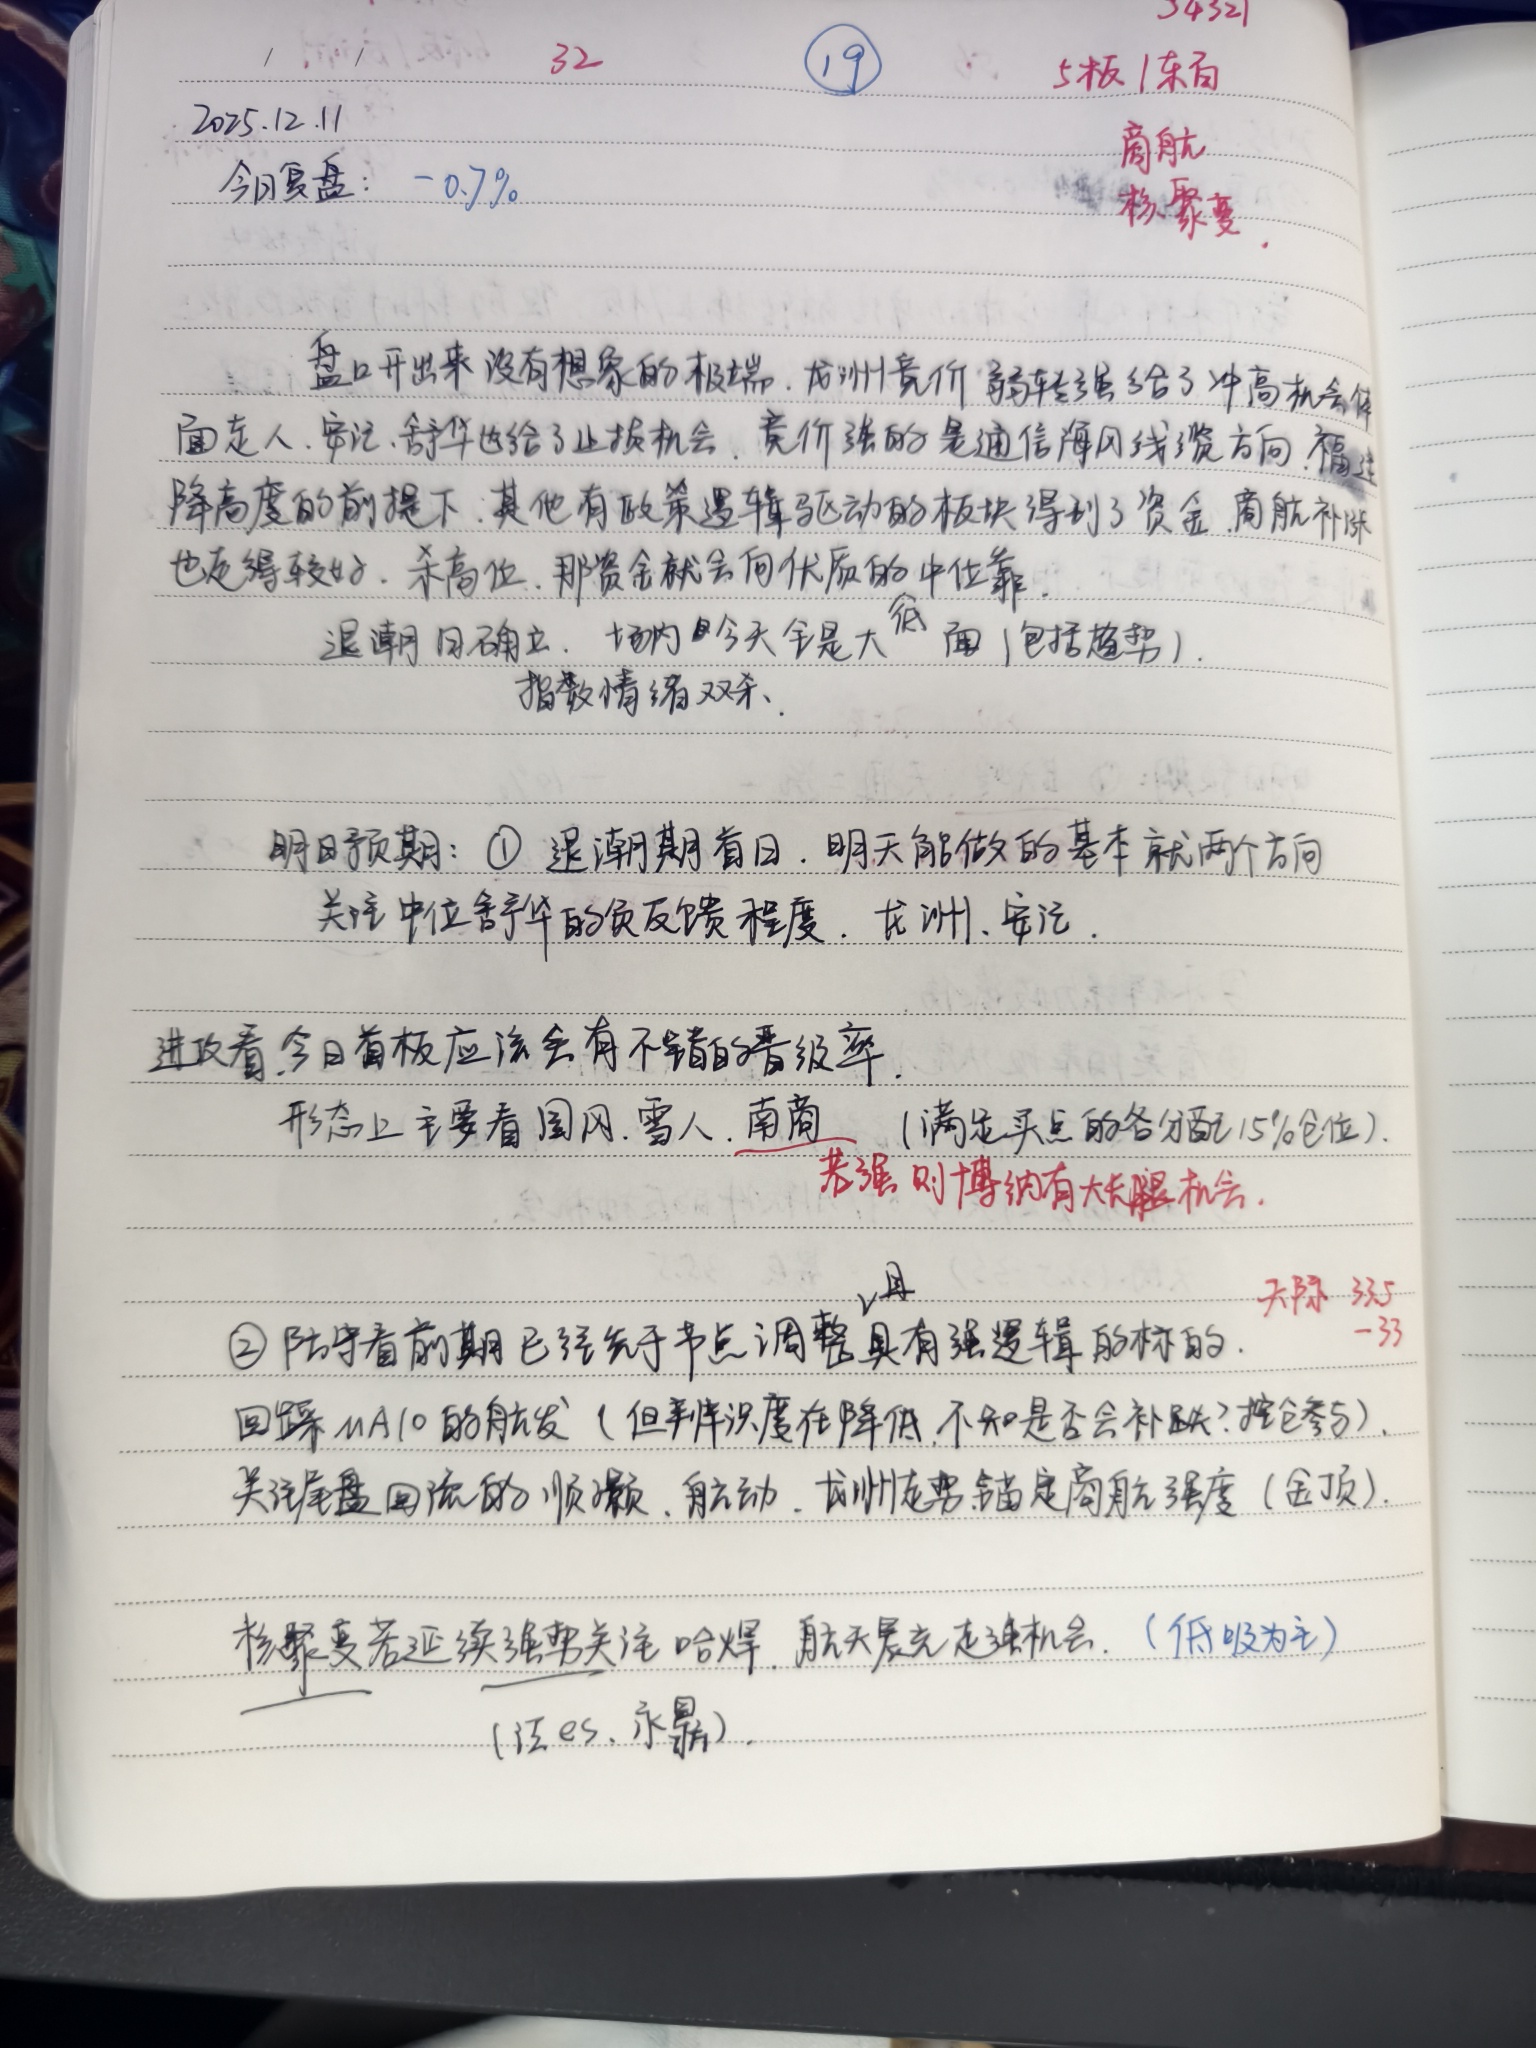 54321
32
19
5板 1东百
2025.12.11
商航
今日复盘： -0.7%
核聚变.
盘口开出来没有想象的极端. 龙洲竞价弱转强给了冲高机会体
面走人、安记、舒华也给了止损机会. 竞价强的是通信海风线缆方向. 福建
降高度的前提下. 其他有政策逻辑驱动的板块得到了资金. 商航补涨
也走得较好. 杀高位. 那资金就会向优质的中位靠.
退潮日确立. 场内今天全是大低面(包括趋势).
指数情绪双杀.
明日预期：① 退潮期首日. 明天能做的基本就两个方向
关注中位舒华的负反馈程度. 龙洲、安记.
进攻看. 今日首板应该会有不错的晋级率.
形态上主要看国风. 雪人. 南商 (满足买点的各分配15%仓位).
若强则博纳有大长腿机会.
天际 33.5
-33
② 防守看前期已经先于节点调整且具有强逻辑的标的.
回踩MA10的航发(但辨识度在降低. 不知是否会补跌? 控仓参与).
关注尾盘回流的顺灏、航动. 龙洲走势锚定商航强度(金顶).
核聚变若延续强势关注哈焊. 航天晨光走强机会. (低吸为主)
(法es. 永鼎).